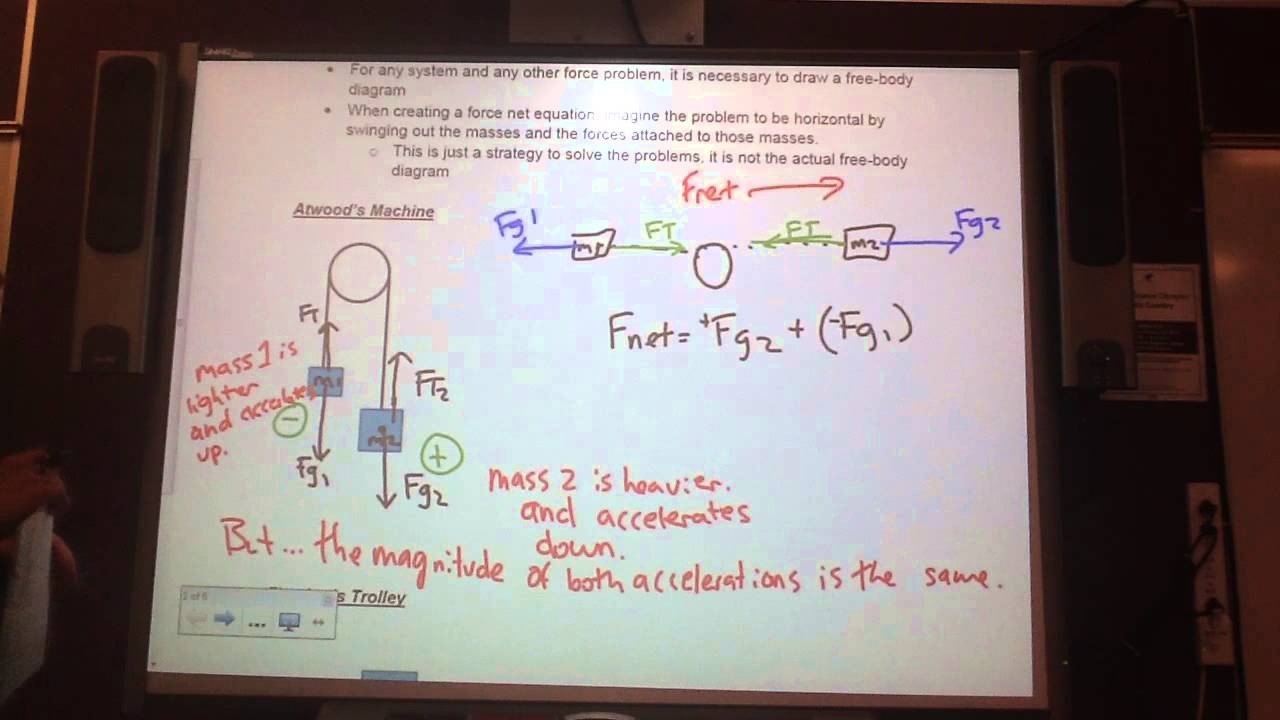 For any system and any other force problem, it is necessary to draw a free-body
diagram
When creating a force net equation, imagine the problem to be horizontal by
swinging out the masses and the forces attached to those masses.
This is just a strategy to solve the problems, it is not the actual free-body
diagram
Fnet
Atwood's Machine
Fg1
m1
FT
FT
m2
Fg2
Fnet = +Fg2 + (-Fg1)
FT
mass 1 is
lighter
and accelerates
up.
m1
FT2
m2
−
+
Fg1
Fg2
mass 2 is heavier.
and accelerates
down.
But... the magnitude of both accelerations is the same.
s Trolley
...